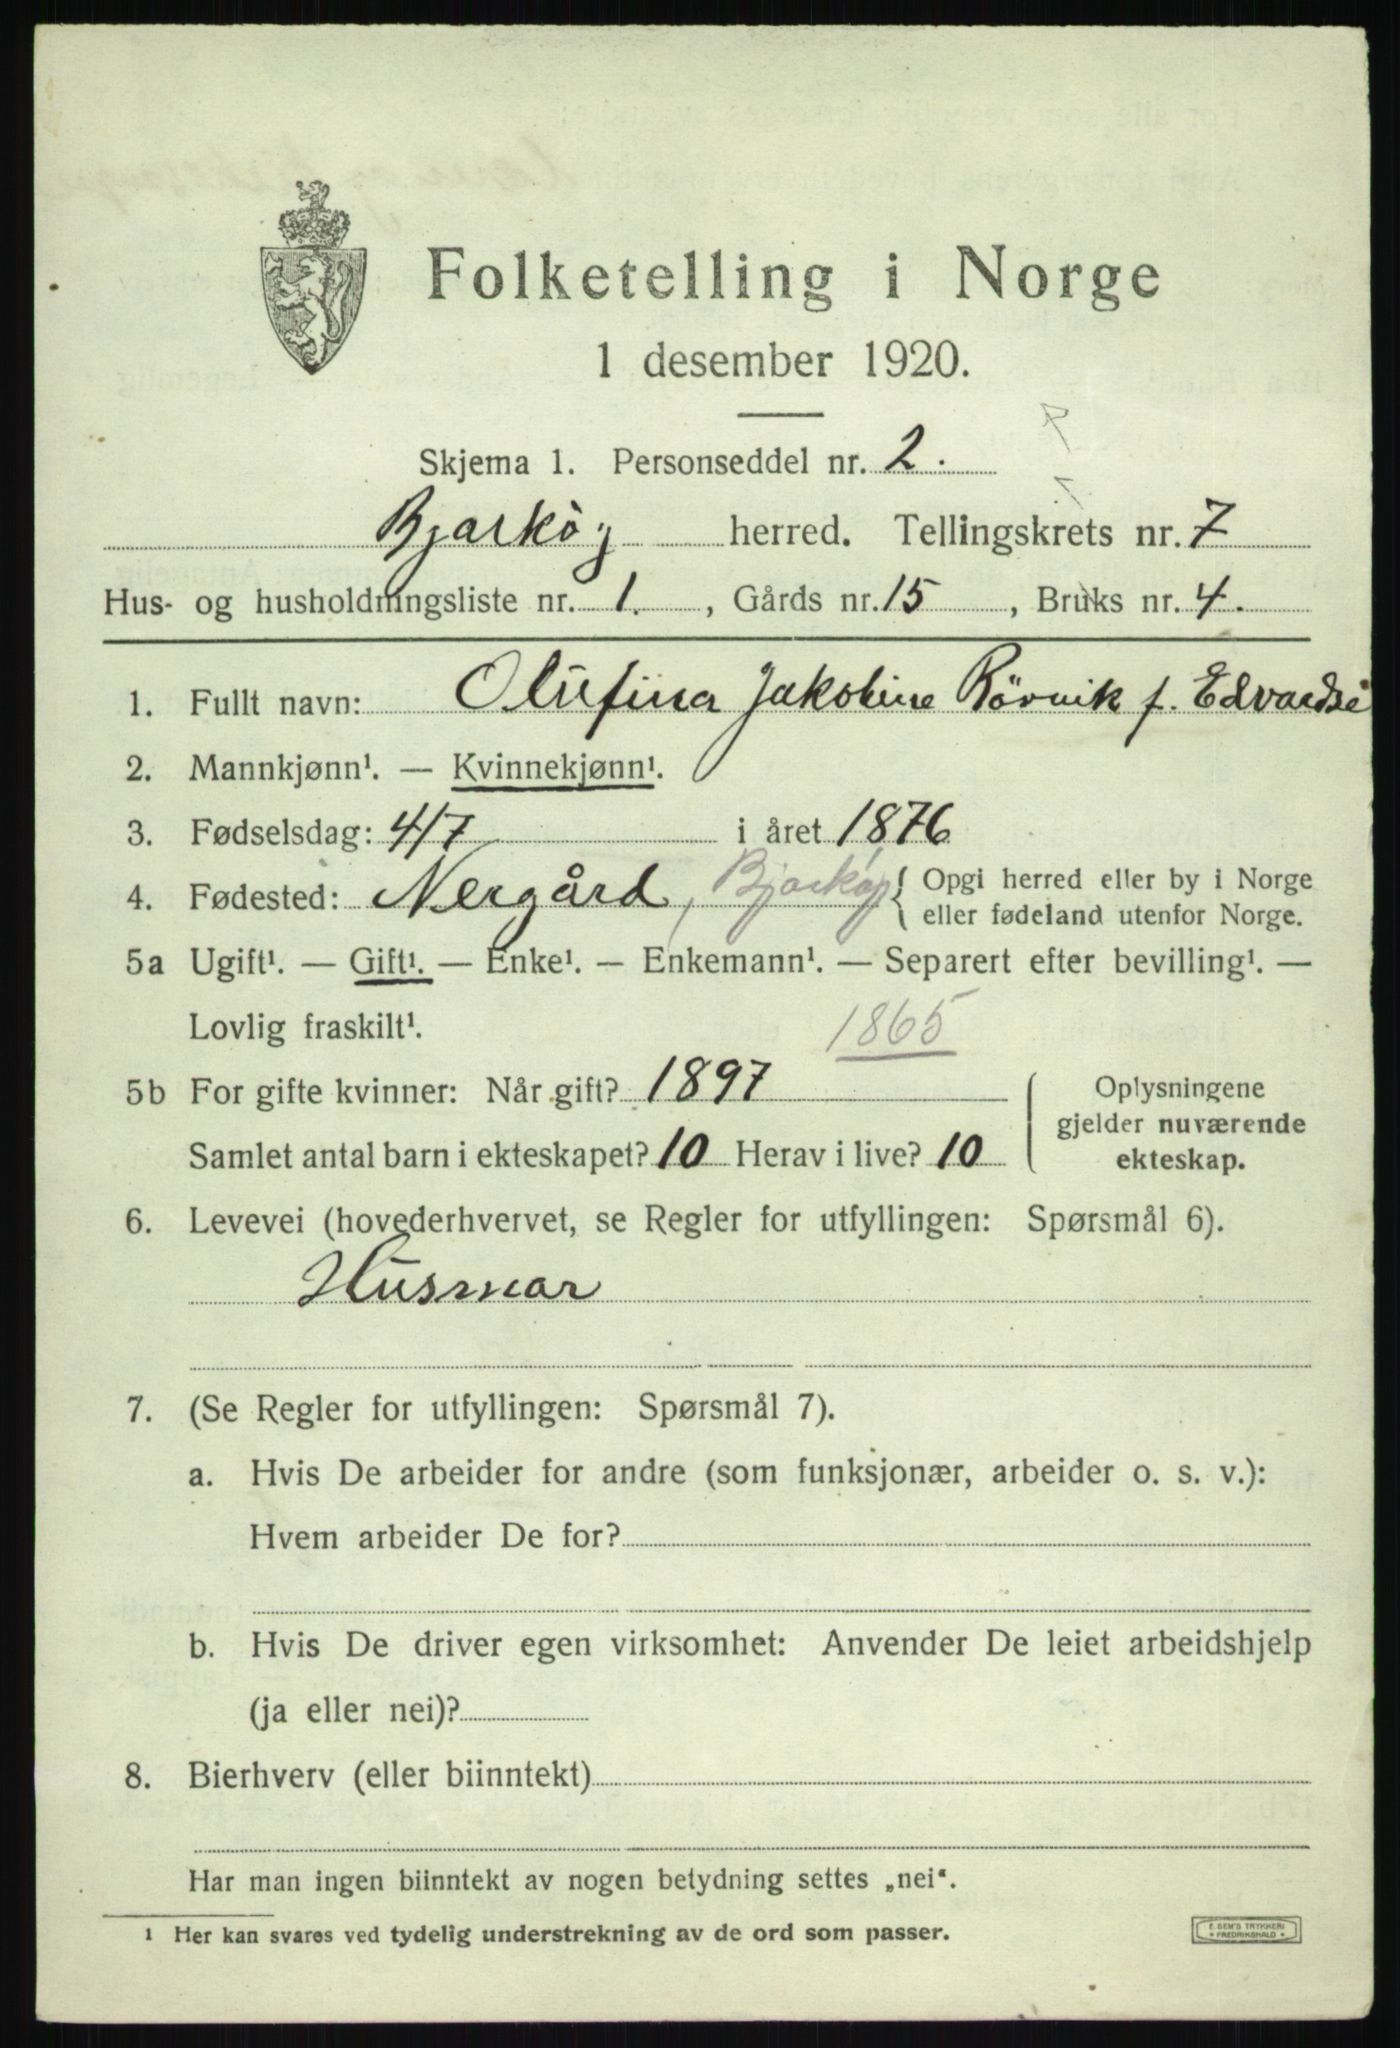 Folketelling i Norge
1 desember 1920.
Skjema 1. Personseddel nr. 2.
Bjarköy herred. Tellingskrets nr. 7
Hus- og husholdningsliste nr. 1., Gårds nr. 15, Bruks nr. 4.
1. Fullt navn: Olufina Jakobine Rörvik f. Edvardse
2. Mannkjønn¹. — Kvinnekjønn¹.
3. Fødselsdag: 4/7 i året 1876
4. Fødested: Nergård, Bjarkøy { Opgi herred eller by i Norge
eller fødeland utenfor Norge.
5a Ugift¹. — Gift¹. — Enke¹. — Enkemann¹. — Separert efter bevilling¹. —
Lovlig fraskilt¹.
1865
5b For gifte kvinner: Når gift? 1897
Samlet antal barn i ekteskapet? 10 Herav i live? 10
Oplysningene
gjelder nuværende
ekteskap.
6. Levevei (hovederhvervet, se Regler for utfyllingen: Spørsmål 6).
Husmor
7. (Se Regler for utfyllingen: Spørsmål 7).
a. Hvis De arbeider for andre (som funksjonær, arbeider o. s. v.):
Hvem arbeider De for?
b. Hvis De driver egen virksomhet: Anvender De leiet arbeidshjelp
(ja eller nei)?
8. Bierhverv (eller biinntekt)
Har man ingen biinntekt av nogen betydning settes „nei“.
¹ Her kan svares ved tydelig understrekning av de ord som passer.
E. SEM'S TRYKKERI
FREDRIKSHALD